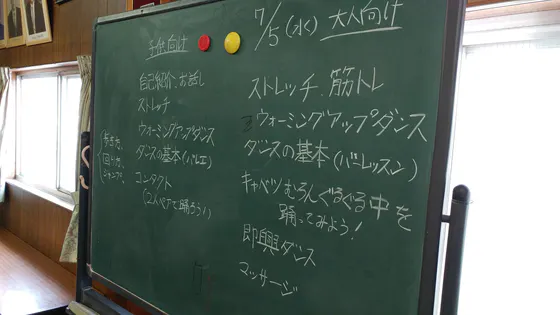 子供向け
自己紹介、お話し
ストレッチ
ウォーミングアップダンス
ダンスの基本(バレエ)
回り方、
ジャンプ、
コンタクト
(2人ペアで踊ろう!)
7/5(水)大人向け
ストレッチ、筋トレ
ウォーミングアップダンス
ダンスの基本(バーレッスン)
キャベツむろんぐるぐる中を
踊ってみよう!
即興ダンス
マッサージ